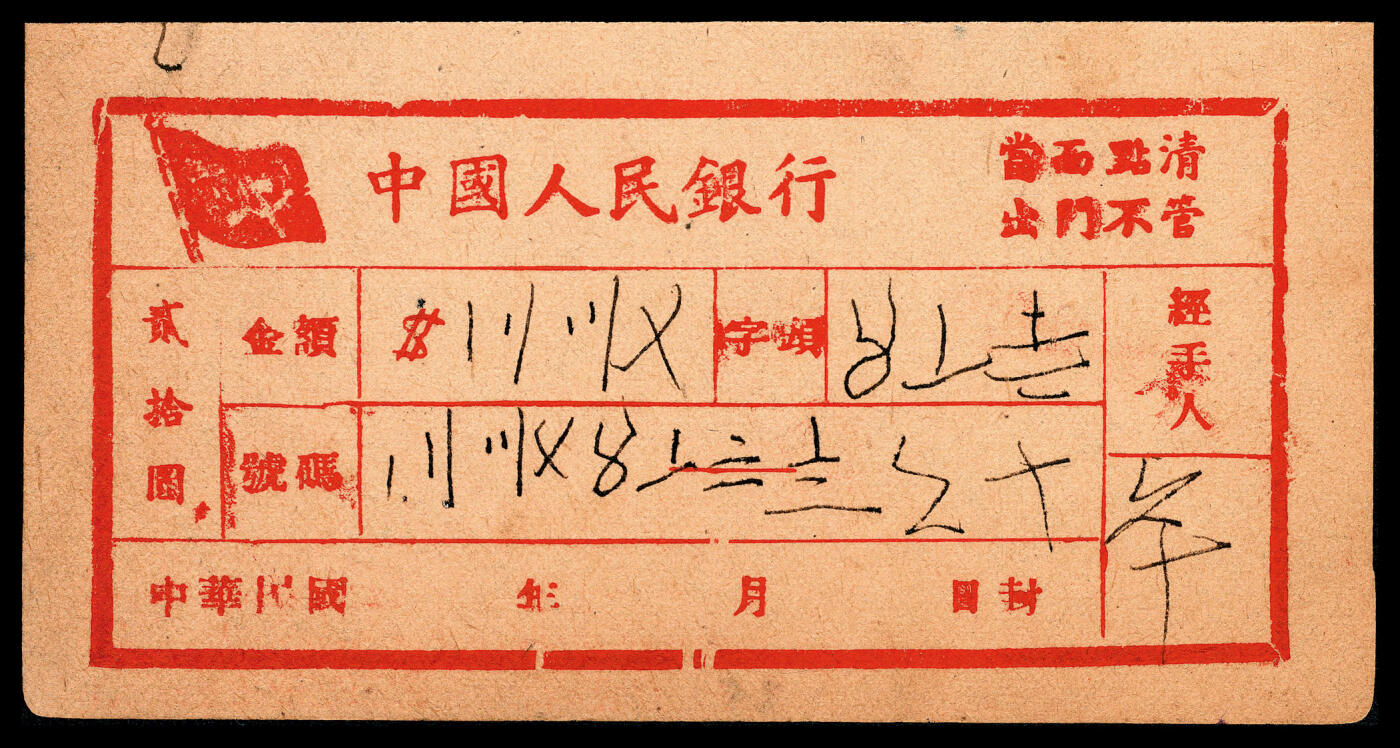 中國人民銀行
當面點清
出門不管
貳拾圓
金額
〡〢〣〤
字頭
〥〦
經手人
號碼
〡〢〣〤〥〦〧〨〩十
中華民國 年 月 日封